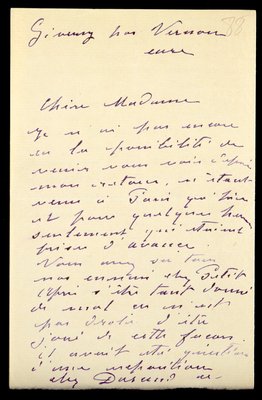 Giverny par Vernon
Eure
38
Chère Madame
Je n'ai pas encore
eu la possibilité de
venir vous voir depuis
mon retour, n'étant
venu à Paris qu'hier
et pour quelques heures
seulement qui étaient
prises d'avance.
Vous avez su tous
nos ennuis chez Petit
après s'être tant donné
de mal on n'est
pas drole d'être
joué de cette façon,
il avait été question
d'une exposition
chez Durand